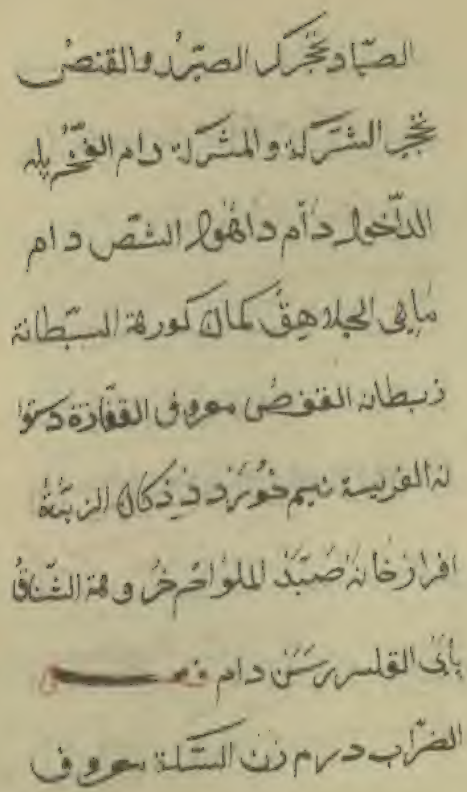 الصیّاد نخجیرکر الصیّد والقنص
نخجیر الشرکة والمشرکة دام الفخّ پله
الداخول دام داهول الشصّ دام
ماهی الجلاهق کمان کورهة السبطانة
زبطانه القفص معروف القفّازة دستوا
نه الفریسة نیم خورد ددکان الزبیة
افرازخانه صید الملواح خروهة الشناق
بابی القلس رسن دام فصل
الضرّاب درم زن السکة معروف